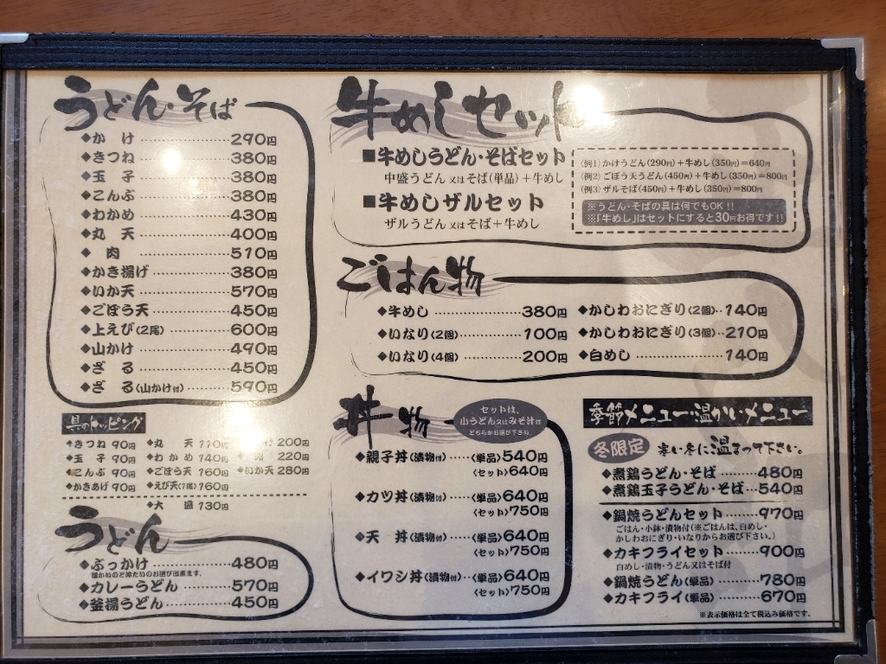 うどん・そば
◆かけ 290円
◆きつね 380円
◆玉子 380円
◆こんぶ 380円
◆わかめ 430円
◆丸天 400円
◆肉 510円
◆かき揚げ 380円
◆いか天 570円
◆ごぼう天 450円
◆上えび(2尾) 600円
◆山かけ 490円
◆ざる 450円
◆ざる(山かけ付) 590円
具のトッピング
◆きつね 90円
◆玉子 90円
◆こんぶ 90円
◆かきあげ 90円
◆丸天 110円
◆わかめ 140円
◆ごぼう天 160円
◆えび天(1尾) 160円
200円
220円
◆いか天 280円
◆大盛 130円
うどん
◆ぶっかけ 480円
温かいのと冷たいのお選び出来ます。
◆カレーうどん 570円
◆釜揚うどん 450円
牛めしセット
■牛めしうどん・そばセット
中盛うどん又はそば(単品)+牛めし
■牛めしザルセット
ザルうどん又はそば+牛めし
(例1)かけうどん(290円)+牛めし(350円)=640円
(例2)ごぼう天うどん(450円)+牛めし(350円)=800円
(例3)ザルそば(450円)+牛めし(350円)=800円
※うどん・そばの具は何でもOK!!
※「牛めし」はセットにすると30円お得です!!
ごはん物
◆牛めし 380円
◆いなり(2個) 100円
◆いなり(4個) 200円
◆かしわおにぎり(2個) 140円
◆かしわおにぎり(3個) 210円
◆白めし 140円
丼物
セットは、
小うどん又はみそ汁付
どちらかお選び下さい
◆親子丼(漬物付) 〈単品〉540円
〈セット〉640円
◆カツ丼(漬物付) 〈単品〉640円
〈セット〉750円
◆天丼(漬物付) 〈単品〉640円
〈セット〉750円
◆イワシ丼(漬物付) 〈単品〉640円
〈セット〉750円
季節メニュー・温かいメニュー
冬限定 寒い冬に温まって下さい。
◆煮鶏うどん・そば 480円
◆煮鶏玉子うどん・そば 540円
◆鍋焼うどんセット 970円
ごはん・小鉢・漬物付(※ごはんは、白めし・
かしわおにぎり・いなりからお選び下さい。)
◆カキフライセット 900円
白めし・漬物・うどん又はそば付
◆鍋焼うどん(単品) 780円
◆カキフライ(単品) 670円
※表示価格は全て税込み価格です。